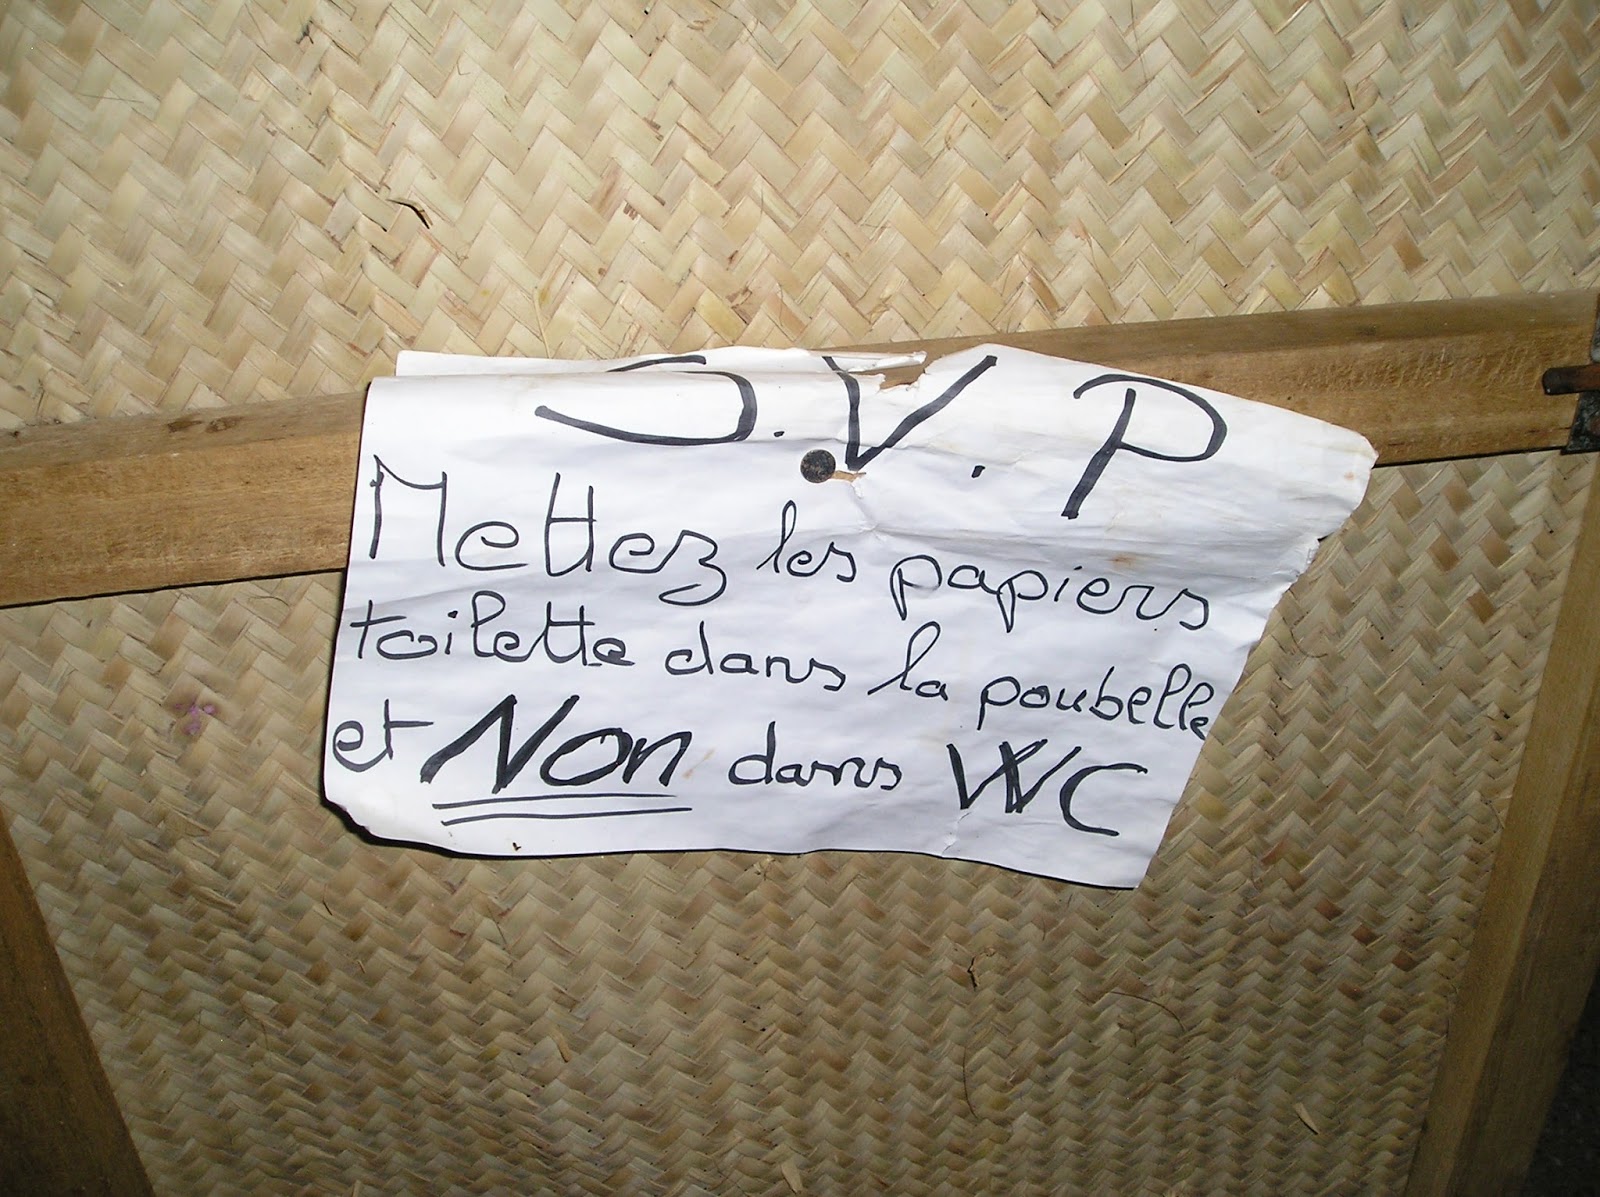 S.V.P
Mettez les papiers
toilette dans la poubelle
et Non dans WC